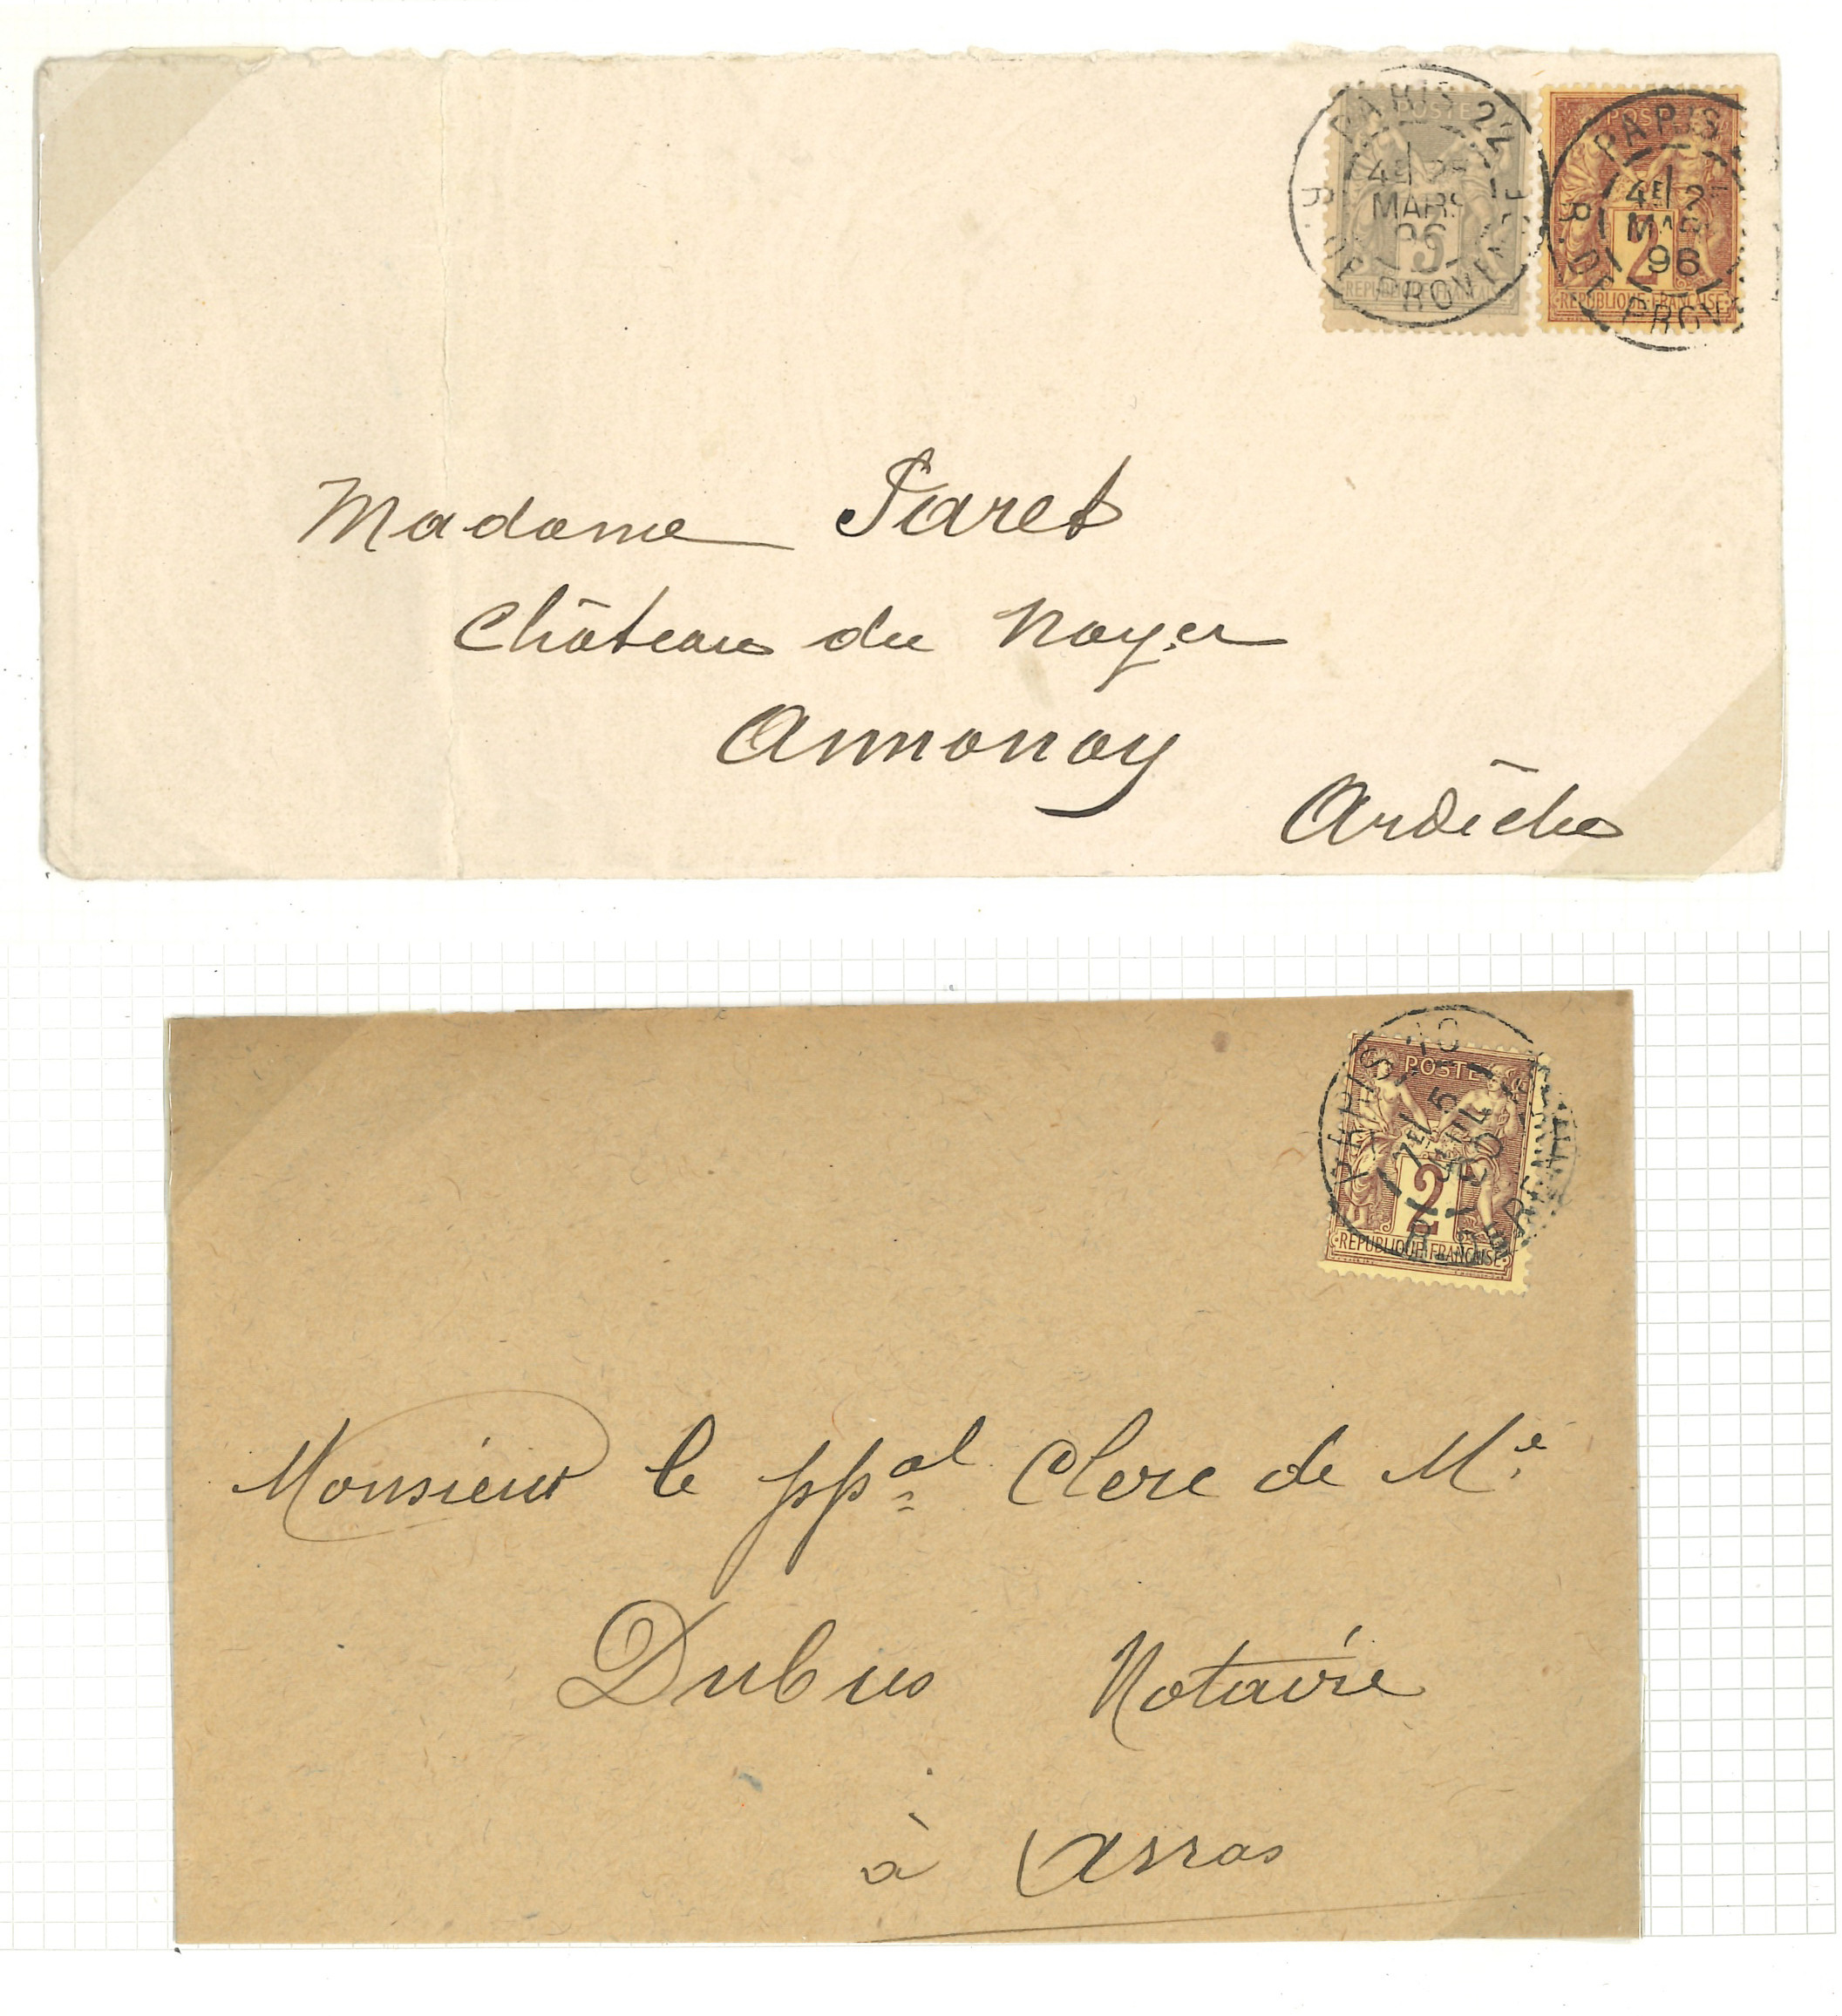 PARIS 22
4E 25
MARS
96
R. DE PROVENCE
POSTE
3
REPUBLIQUE FRANÇAISE
PARIS
4E 2
MARS
96
R. DE PROV
POSTE
2
REPUBLIQUE FRANÇAISE
Madame Paret
Château du Noyer
Annonay
Ardèche
PARIS 10
7E 5
JUIL
90
POSTE
2
REPUBLIQUE FRANÇAISE
Monsieur le ppal Clerc de Me
Dubus Notaire
à Arras